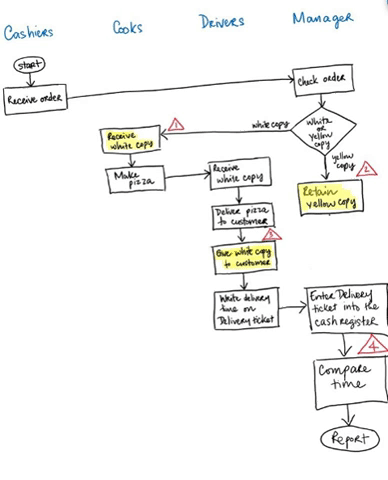 Cashiers
Cooks
Drivers
Manager
start
Receive order
Check order
White
or
Yellow
copy
white copy
yellow
copy
1
Receive
white copy
2
Retain
yellow copy
Make
pizza
Receive
white copy
Deliver pizza
to customer
3
Give white copy
to customer
Write delivery
time on
Delivery ticket
Enter Delivery
ticket into the
cash register
4
Compare
time
Report